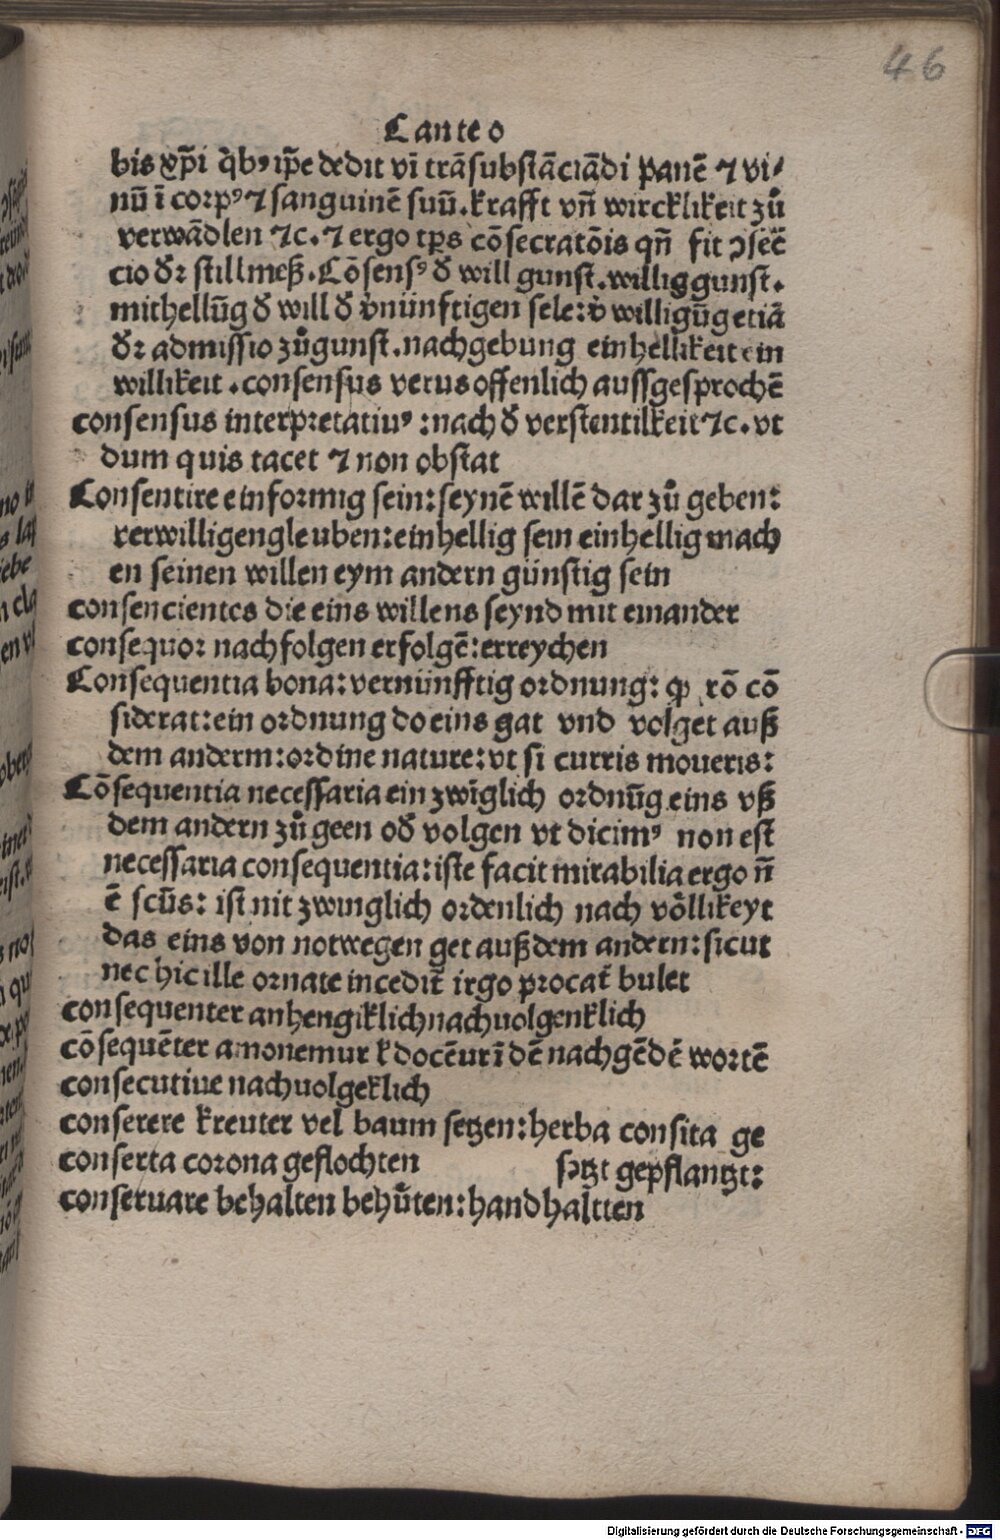 46
Canteo
bis xp̄i q̇bꝰ ip̄e dedit vī trāsubstāciādi panē ⁊ vi⸗
nū ī corpꝰ ⁊ sanguinē suū. krafft vn̄ wircklikeit zů
verwādlen ⁊c. ⁊ ergo tp̄s cōsecratōis qn̄ fit ↄsec̄
cio dꝛ stillmeß. Cōsensꝰ đ will gunst. willig gunst.
mithellūg đ will đ v̓nünftigen sele: v̓ willigūg etiā
dꝛ admissio zůgunst. nachgebung einhellikeit ein
willikeit. consensus verus offenlich aussgesprochē
consensus interpretatiuꝰ: nach đ verstentilkeit ⁊c. vt
dum quis tacet ⁊ non obstat
Consentire einformig sein: seynē willē dar zů geben:
verwilligen gleuben: einhellig sein einhellig mach
en seinen willen eym andern günstig sein
consencientes die eins willens seynd mit einander
consequor nachfolgen erfolgē: erreychen
Consequentia bona: vernünfftig ordnung: ꝙ rō cō
siderat: ein ordnung do eins gat vnd volget auß
dem anderm: ordine nature: vt si curris moueris:
Cōsequentia necessaria ein zwīglich ordnūg eins vß
dem andern zů geen ođ volgen vt dicimꝰ non est
necessaria consequentia: iste facit mirabilia ergo n̄
ē scūs: ist nit zwinglich ordenlich nach völlikeyt
das eins von notwegen get auß dem andern: sicut
nec hic ille ornate incedit̄ irgo procat̄ bulet
consequenter anhengiklich nachuolgenklich
cōsequēter amonemur ł docēur ī dē nachgēdē wortē
consecutiue nachuolgeklich
conserere kreuter vel baum setzen: herba consita ge
conserta corona geflochten setzt gepflantzt:
conseruare behalten behůten: handhaltten
Digitalisierung gefördert durch die Deutsche Forschungsgemeinschaft - DFG